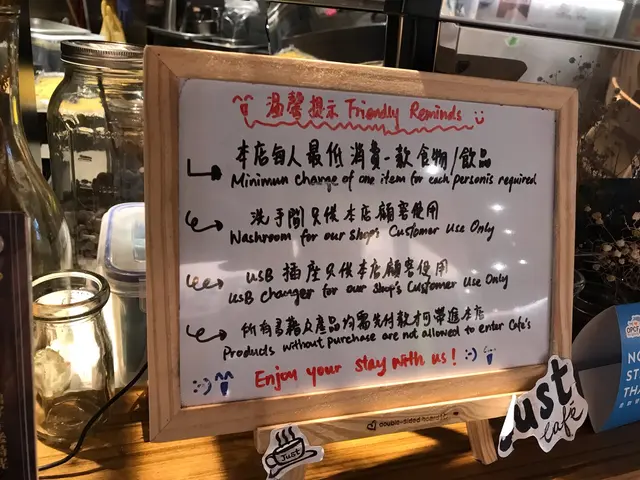 溫馨提示 Friendly Reminds
本店每人最低消費一款食物/飲品
Minimun change of one item for each personis required
洗手間只供本店顧客使用
Washroom for our shop's Customer Use Only
USB 插座只供本店顧客使用
USB changer for our shop's Customer Use Only
所有書籍及產品均需先付款才可帶進本店
Products without purchase are not allowed to enter Cafe's
Enjoy your stay with us!
double-sided board
Just
Just
cafe
NO
ST
THA